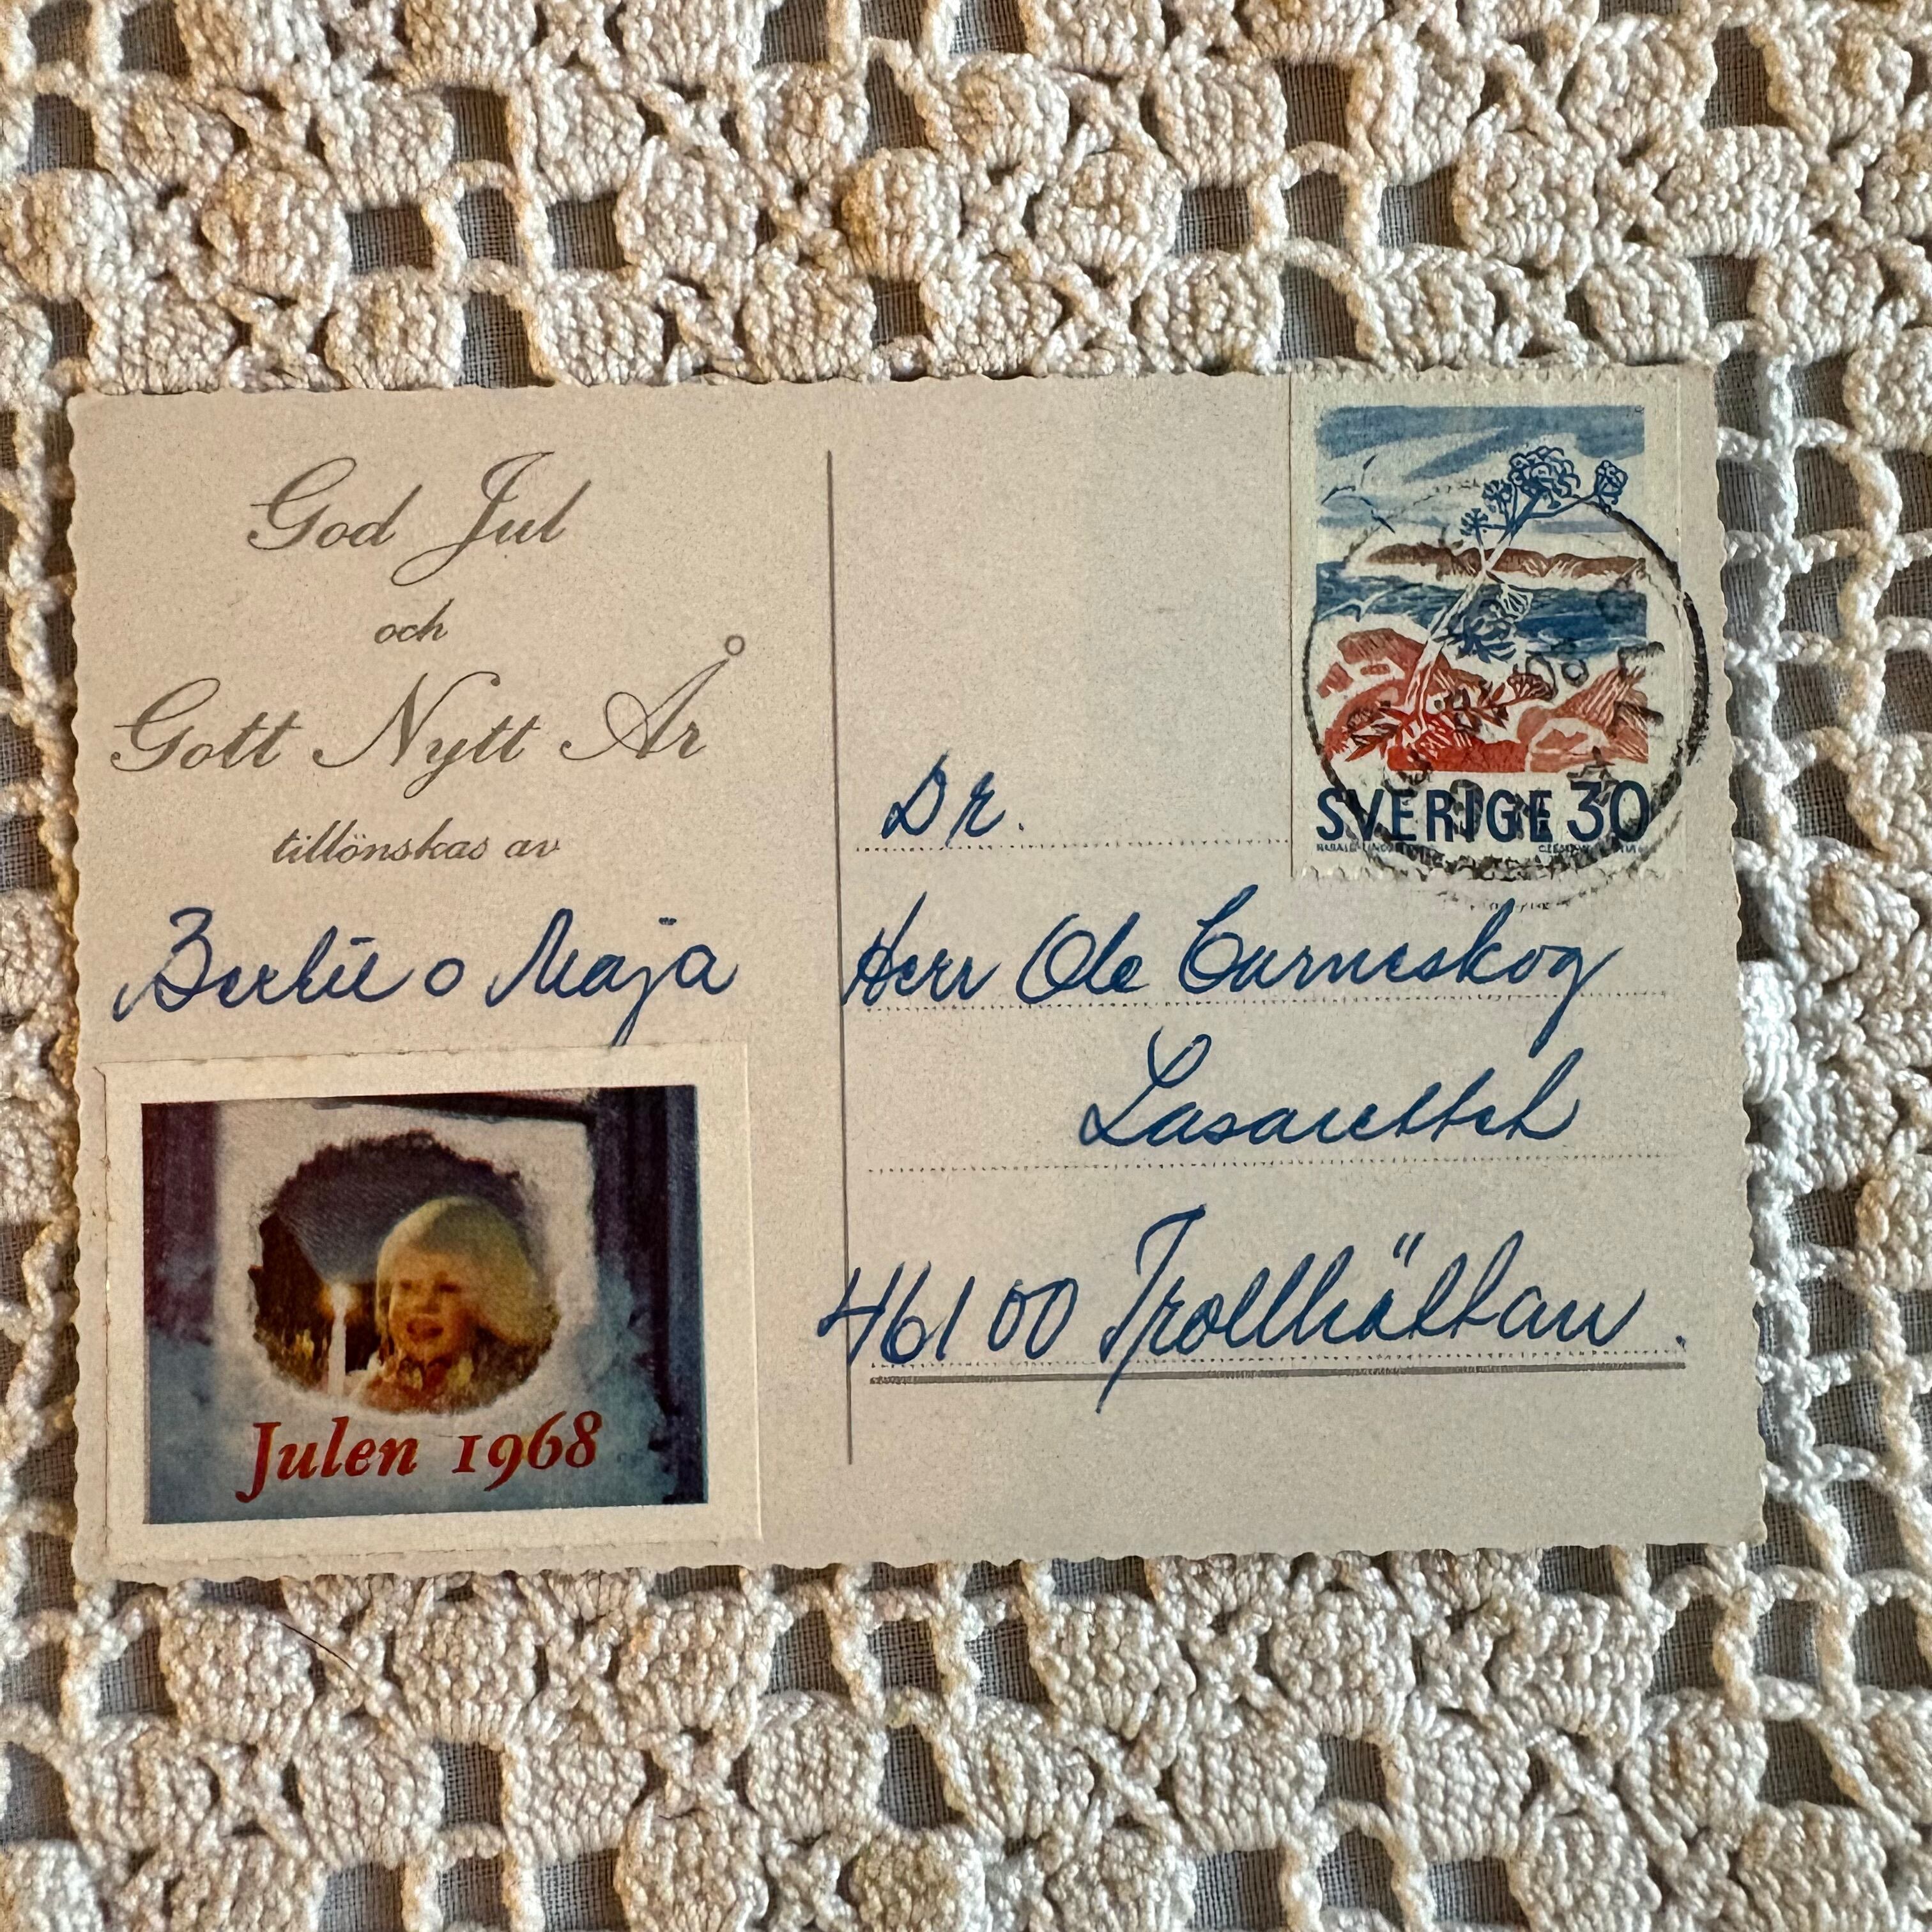 God Jul
och
Gott Nytt År
tillönskas av
Bertil o Maja
Julen 1968
SVERIGE 30
Dr.
Herr Ole Carneskog
Lasarettet
46100 Trollhättan.